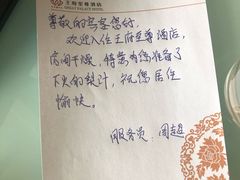 王府至尊酒店
GREAT PALACE HOTEL
尊敬的宾客您好,
欢迎入住王府至尊酒店,
房间干燥,特意为您准备了
下火的梨汁,祝您居住
愉快。
服务员:周超